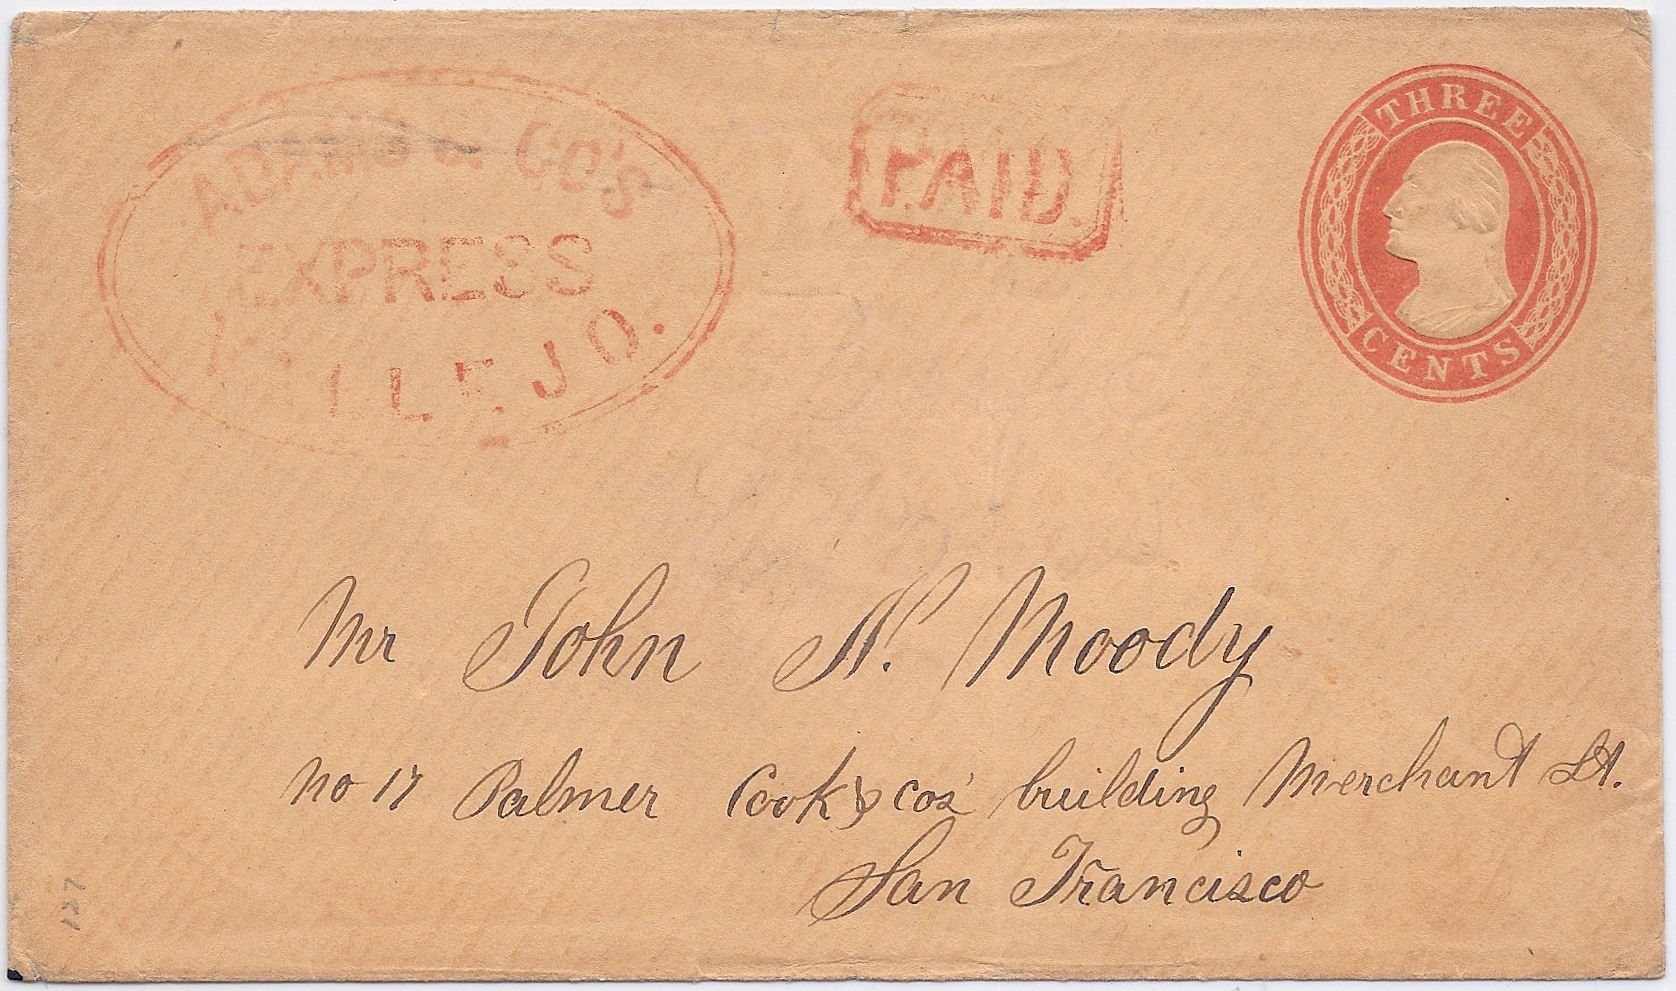 ADAMS & CO'S
EXPRESS
PAID.
THREE
CENTS
Mr John N. Moody
No 17 Palmer Cook & Cos' building Merchant St.
San Francisco
127